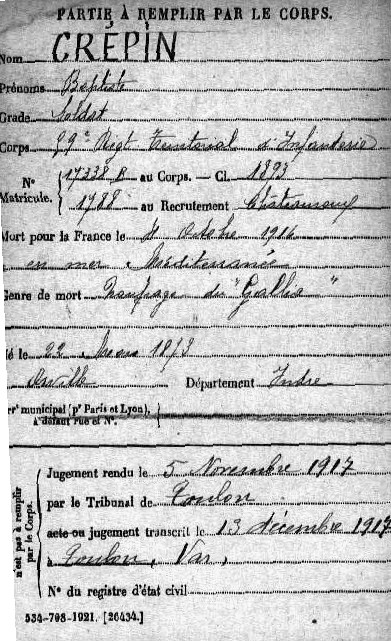 PARTIE À REMPLIR PAR LE CORPS.
Nom CRÉPIN
Prénoms Baptiste
Grade Soldat
Corps 99e Régt Territorial d'Infanterie
N° Matricule. 17338 B au Corps. — Cl. 1893
1788 au Recrutement Châteauroux
Mort pour la France le 4 Octobre 1916
en mer Méditerranée
Genre de mort Naufrage du "Gallia"
Né le 22 Mars 1873
Département Indre
Arrt municipal (pr Paris et Lyon),
à défaut rue et N°.
n'est pas à remplir par le Corps.
Jugement rendu le 5 Novembre 1917
par le Tribunal de Toulon
acte ou jugement transcrit le 13 décembre 1917
à Toulon, Var,
N° du registre d'état civil
534-708-1921. [26434.]